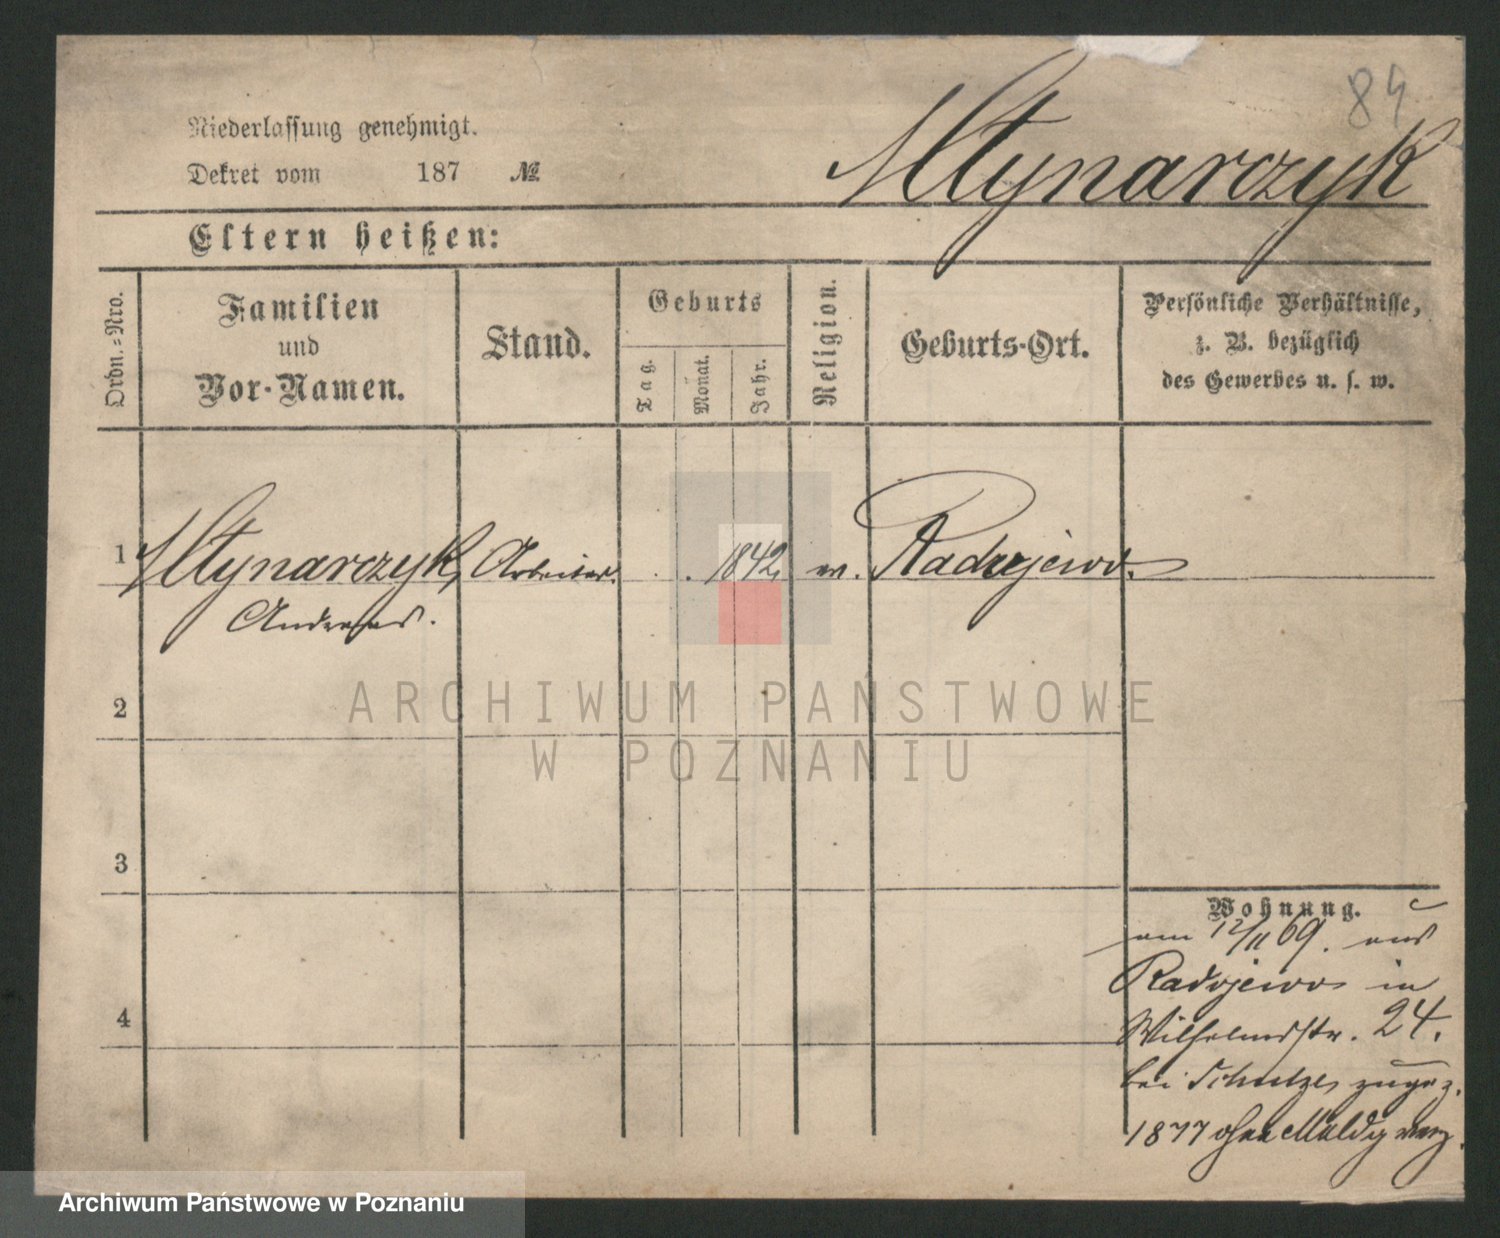 84
Niederlassung genehmigt.
Dekret vom 187 №
Młynarczyk
Eltern heißen:
Ordn.-Nro.
Familien
und
Vor-Namen.
Stand.
Geburts
Tag.
Monat.
Jahr.
Religion.
Geburts-Ort.
Persönliche Verhältnisse,
z. B. bezüglich
des Gewerbes u. s. w.
1 Młynarczyk, Arbeiter. . . 1842, Radzejewo.
Andreas.
2
ARCHIWUM PAŃSTWOWE
W POZNANIU
3
4
Wohnung.
am 12/11 69. aus
Radojewo in
Wilhelmstr. 24.
bei Schultze, zugez.
1877 ohne Meldg verz.
Archiwum Państwowe w Poznaniu